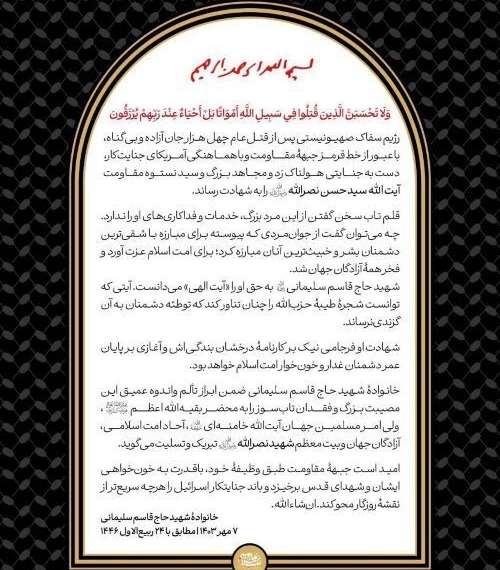 بسم الله الرحمن الرحیم
وَلَا تَحْسَبَنَّ الَّذِينَ قُتِلُوا فِي سَبِيلِ اللَّهِ أَمْوَاتًا بَلْ أَحْيَاءٌ عِنْدَ رَبِّهِمْ يُرْزَقُونَ
رژیم سفاک صهیونیستی پس از قتل عام چهل هزار جان آزاده و بی‌گناه،
با عبور از خط قرمز جبههٔ مقاومت و با هماهنگی آمریکای جنایت‌کار،
دست به جنایتی هولناک زد و مجاهد بزرگ و سید نستوه مقاومت
آیت‌الله سید حسن نصرالله را به شهادت رساند.
قلم تاب سخن گفتن از این مرد بزرگ، خدمات و فداکاری‌های او را ندارد.
چه می‌توان گفت از جوان‌مردی که پیوسته برای مبارزه با شقی‌ترین
دشمنان بشر و خبیث‌ترین آنان مبارزه کرد؛ برای امت اسلام عزت آورد و
فخر همهٔ آزادگان جهان شد.
شهید حاج قاسم سلیمانی به حق او را «آیت الهی» می‌دانست. آیتی که
توانست شجرهٔ طیبهٔ حزب‌الله را چنان تناور کند که توطئه دشمنان به آن
گزندی نرساند.
شهادت او فرجامی نیک بر کارنامهٔ درخشان بندگی‌اش و آغازی بر پایان
عمر دشمنان غدار و خون‌خوار امت اسلام خواهد بود.
خانوادهٔ شهید حاج قاسم سلیمانی ضمن ابراز تألم و اندوه عمیق این
مصیبت بزرگ و فقدان تاب‌سوز را به محضر بقیه‌الله اعظم ،
ولی امر مسلمین جهان آیت‌الله خامنه‌ای ، آحاد امت اسلامی،
آزادگان جهان و بیت معظم شهید نصرالله تبریک و تسلیت می‌گوید.
امید است جبههٔ مقاومت طبق وظیفهٔ خود، باقدرت به خون‌خواهی
ایشان و شهدای قدس برخیزد و باند جنایتکار اسرائیل را هرچه سریع‌تر از
نقشهٔ روزگار محو کند. ان‌شاءالله.
خانوادهٔ شهید حاج قاسم سلیمانی
۷ مهر ۱۴۰۳ | مطابق با ۲۴ ربیع‌الاول ۱۴۴۶